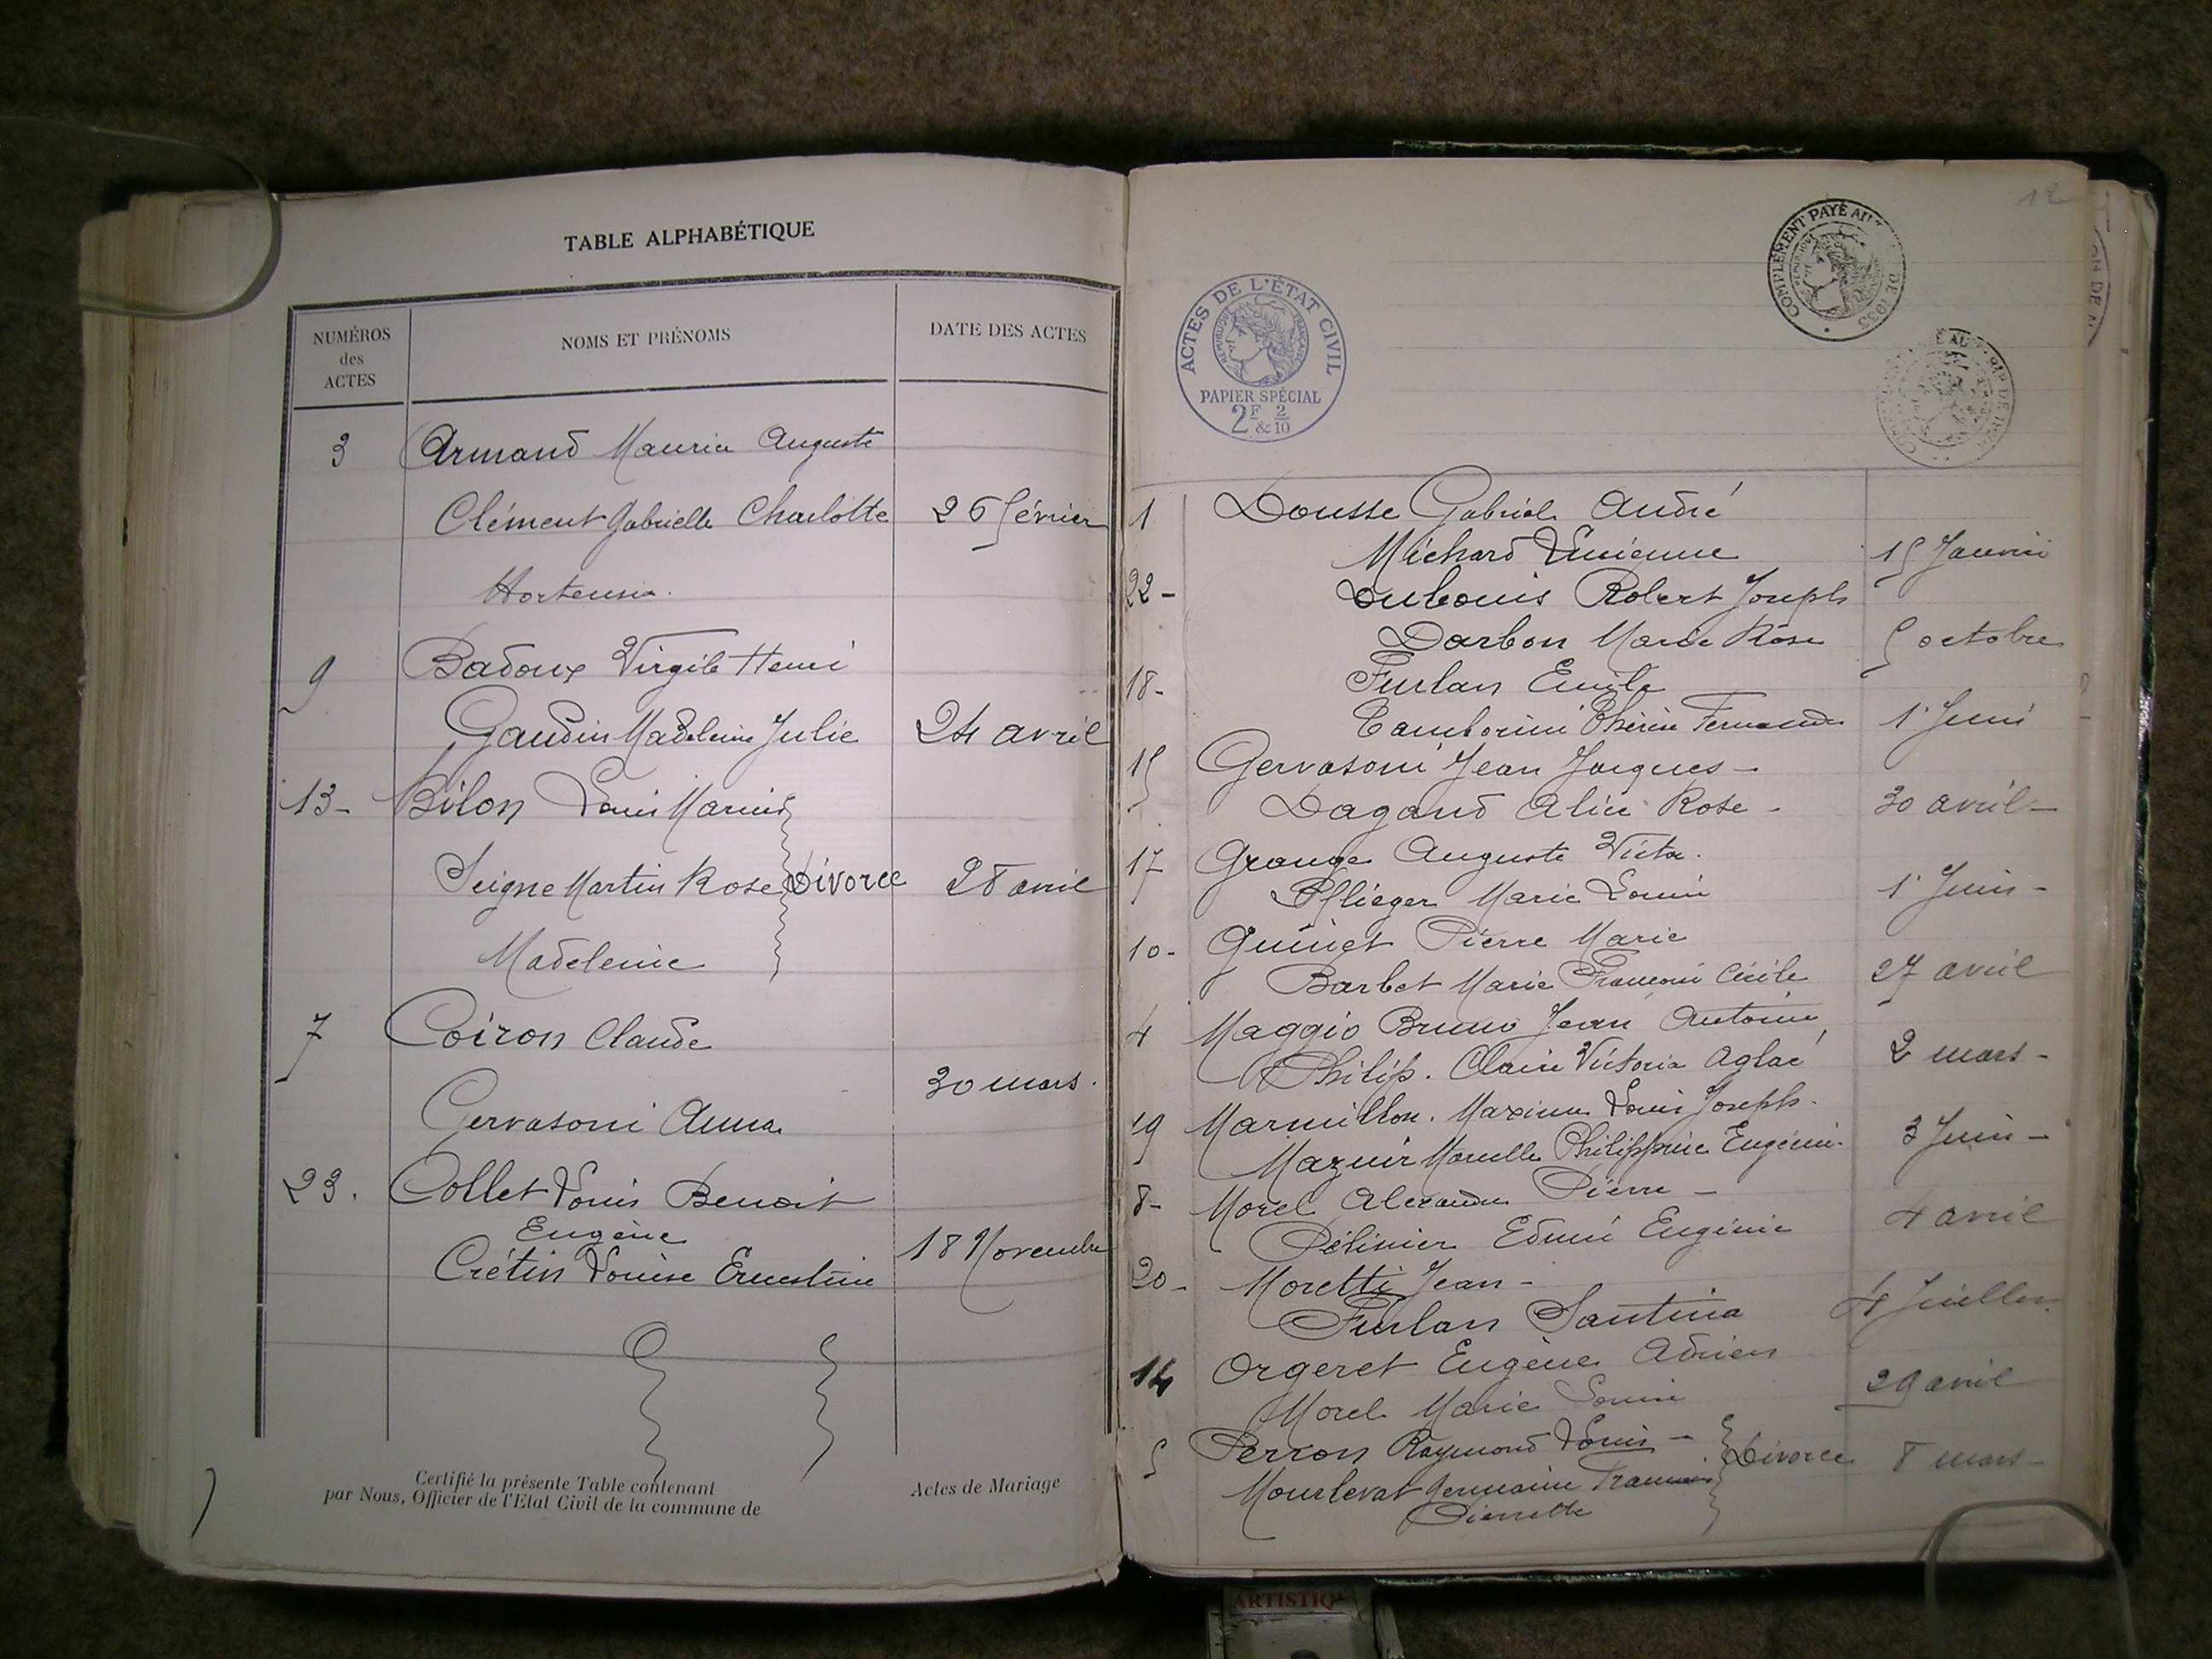 TABLE ALPHABÉTIQUE
NUMÉROS des ACTES
NOMS ET PRÉNOMS
DATE DES ACTES
3 Armand Maurice Auguste
Clément Gabrielle Charlotte 26 février
Hortensia.
9 Badoux Virgile Henri
Gaudin Madeleine Julie 24 avril
13- Bilon Louis Marius
Seigne Martin Rose Divorce 28 avril
Madeleine
7 Coiron Claude
30 mars.
Gervasoni Anna
23. Collet Louis Benoit
Eugène
18 Novembre
Crétin Louise Ernestine
Certifié la présente Table contenant Actes de Mariage
par Nous, Officier de l'Etat Civil de la commune de
12
COMPLÉMENT PAYÉ AU DE 1933
ACTES DE L'ÉTAT CIVIL
RÉPUBLIQUE FRANÇAISE
PAPIER SPÉCIAL
2F & 2/10
1 Dousse Gabriel André
Michard Lucienne 15 Janvier
22- Dubouis Robert Joseph
Darbon Marie Rose 5 octobre
18- Furlan Emile
Tamborini Fernande 1 Juin
15 Gervasoni Jean Jacques -
Dagand Alice Rose - 30 avril -
17 Grange Auguste Victor.
Pflieger Marie Louise 1 Juin -
10- Guinet Pierre Marie
Barbet Marie Françoise Cécile 27 avril
4 Maggio Bruno Jean Antoine
Philip. Claire Victoria Aglaé 2 mars -
19 Marmillon. Maxime Louis Joseph.
Mazuir Marcelle Philippine Eugénie. 3 Juin -
8- Morel Alexandre Pierre -
Pélinier Edmée Eugénie 4 avril
20- Moretti Jean -
Furlan Santina 4 Juillet
14 Orgeret Eugène Adrien
Morel Marie Louise 29 avril
5 Perron Raymond Louis - Divorce 8 mars -
Mourlevat Germaine
Pierrette
ARTISTIQ